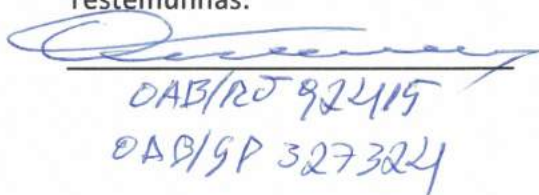 Testemunhas:
OAB/RJ 92415
OAB/SP 327324